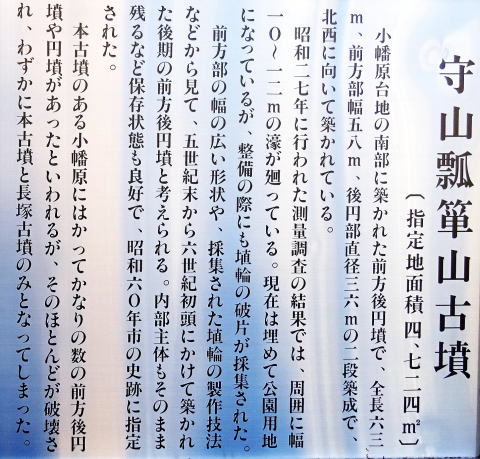 守山瓢箪山古墳
〔指定地面積 四、七二四㎡〕
小幡原台地の南部に築かれた前方後円墳で、全長六三
m、前方部幅五八m、後円部直径三六mの二段築成で、
北西に向いて築かれている。
昭和二七年に行われた測量調査の結果では、周囲に幅
一〇〜一二mの濠が廻っている。現在は埋めて公園用地
になっているが、整備の際にも埴輪の破片が採集された。
前方部の幅の広い形状や、採集された埴輪の製作技法
などから見て、五世紀末から六世紀初頭にかけて築かれ
た後期の前方後円墳と考えられる。内部主体もそのまま
残るなど保存状態も良好で、昭和六〇年市の史跡に指定
された。
本古墳のある小幡原にはかつてかなりの数の前方後円
墳や円墳があったといわれるが、そのほとんどが破壊さ
れ、わずかに本古墳と長塚古墳のみとなってしまった。